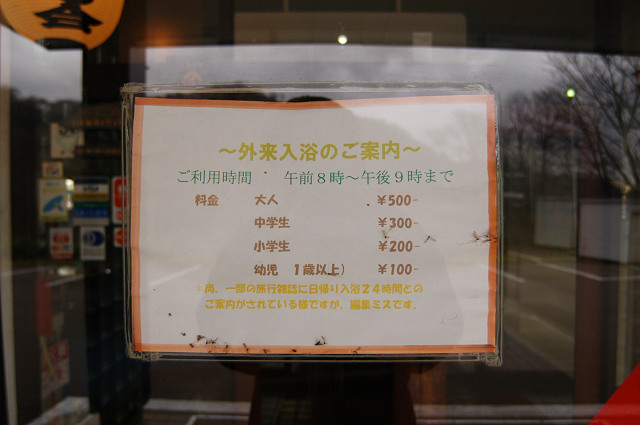 ～外来入浴のご案内～
ご利用時間　午前８時～午後９時まで
料金　大人　￥500-
中学生　￥300-
小学生　￥200-
幼児　１歳以上）　￥100-
※尚、一部の旅行雑誌に日帰り入浴２４時間との
ご案内がされている様ですが、編集ミスです。